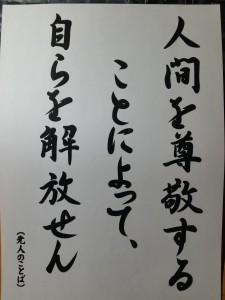 人間を尊敬する
ことによって、
自らを解放せん
(先人のことば)